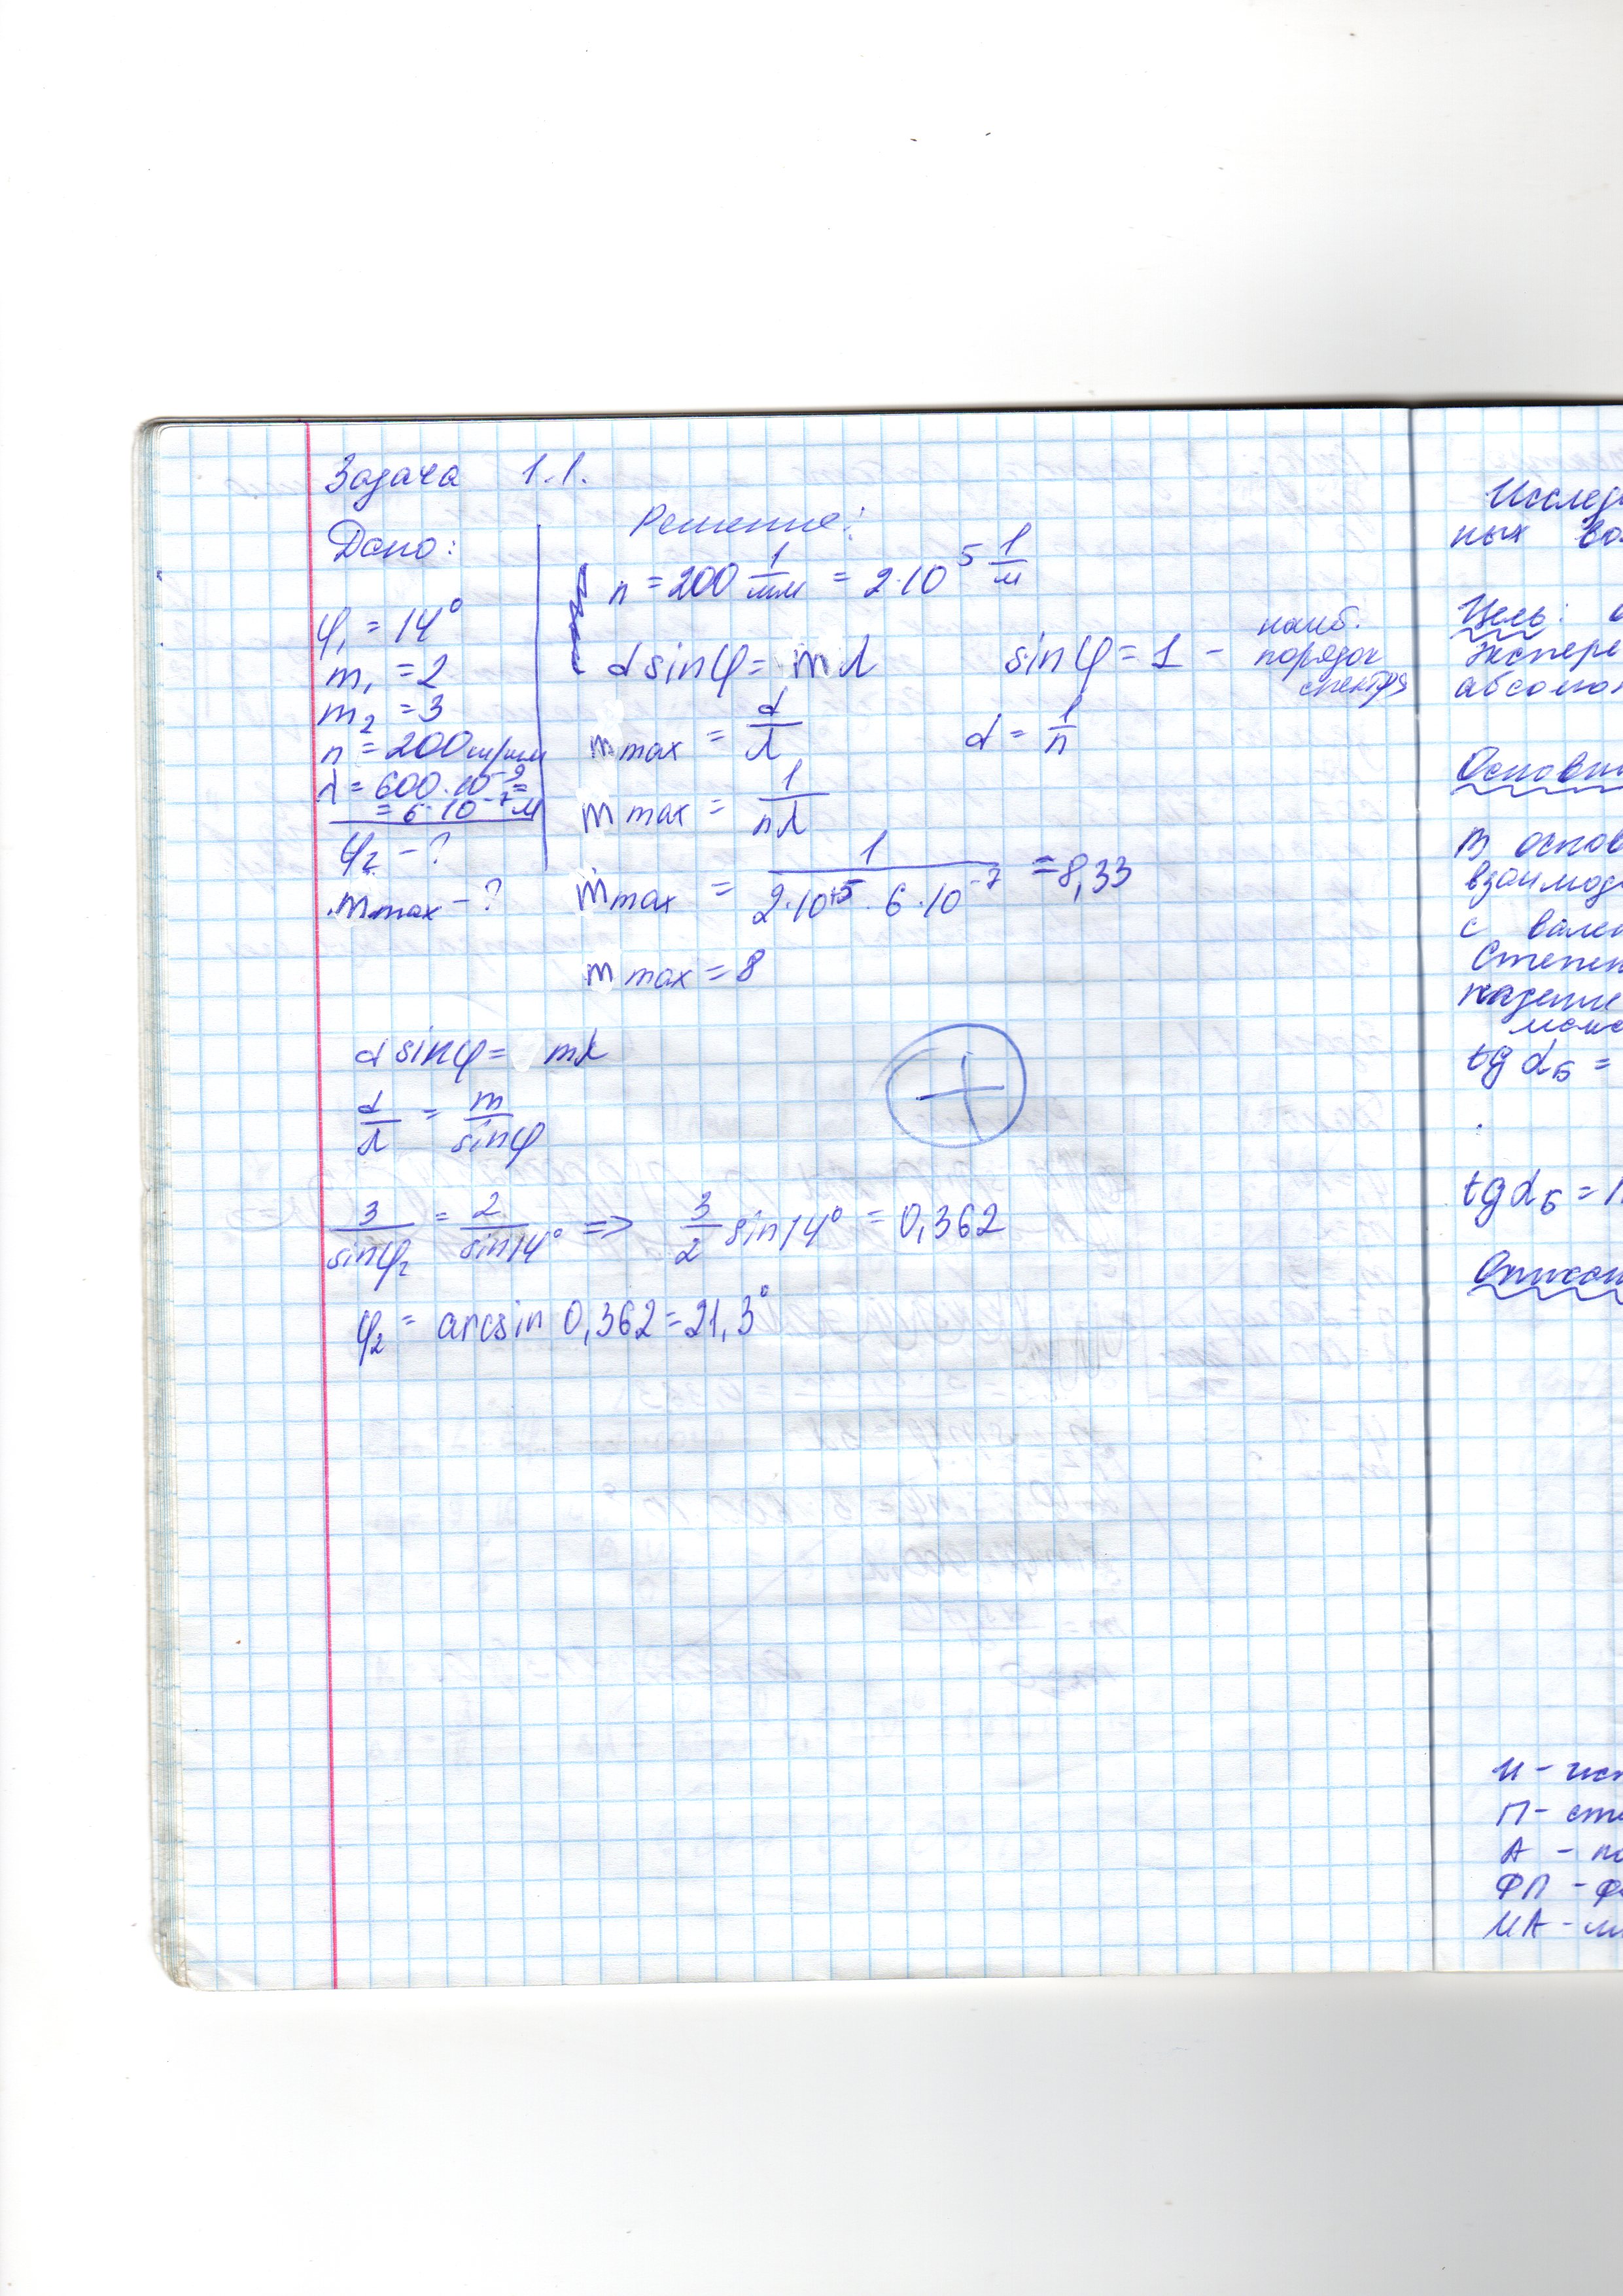 Задача 1.1.
Дано:
φ₁ = 14°
m₁ = 2
m₂ = 3
n = 200 шт/мм
λ = 600·10⁻⁹ =
= 6·10⁻⁷ м
φ₂ - ?
m max - ?
Решение:
n = 200 1/мм = 2·10⁵ 1/м
d sinφ = mλ sinφ = 1 - наиб.
порядок
спектра
m max = d/λ d = 1/n
m max = 1/nλ
m max = 1/(2·10⁺⁵·6·10⁻⁷) = 8,33
m max = 8
d sinφ = mλ
d/λ = m/sinφ
3/sinφ₂ = 2/sin14° => 3/2 sin14° = 0,362
φ₂ = arcsin 0,362 = 21,3°
Исслед
ных во
Цель:
экспере
абсолю
Основн
В основ
взаимод
с вален
Степен
tg α_Б =
tg α_Б = 1
Описан
И - ист
П - сте
А - по
ФП - ф
МА - м